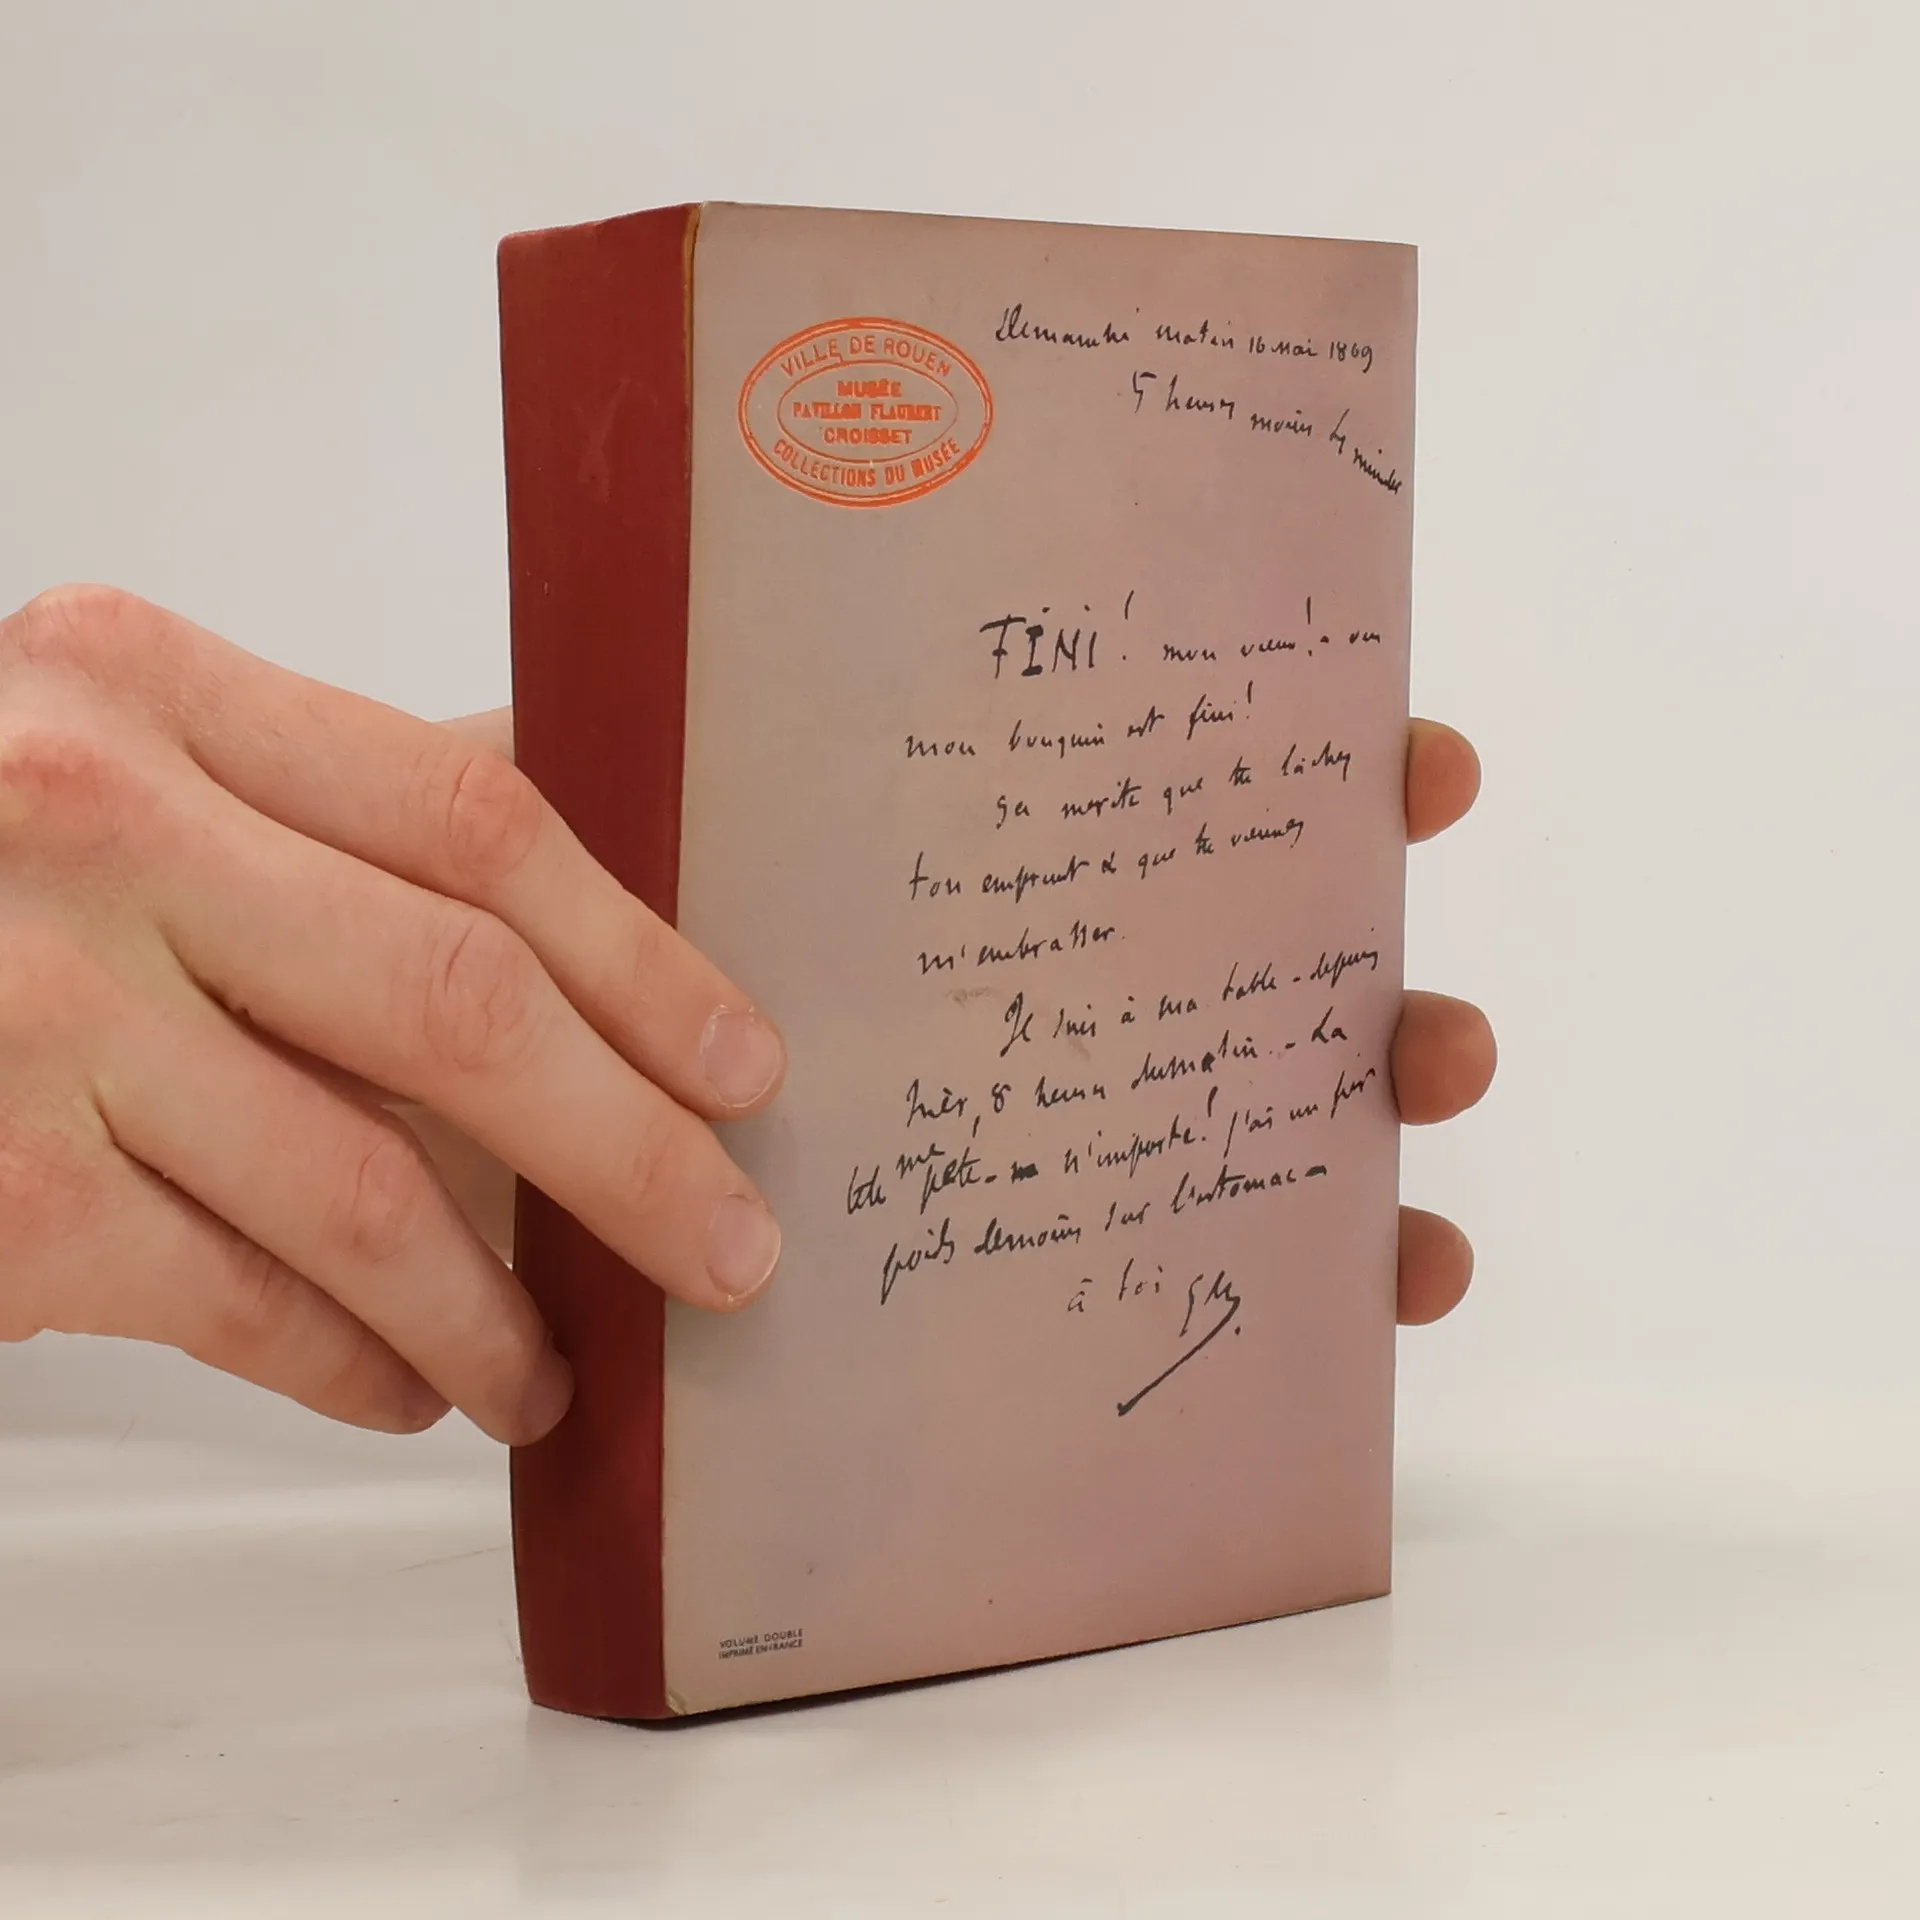 VILLE DE ROUEN
MUSÉE
PAVILLON FLAUBERT
CROISSET
COLLECTIONS DU MUSÉE
Dimanche matin 16 Mai 1869
5 heures moins 4 minutes
FINI! mon vieux! - oui
mon bouquin est fini!
Ça mérite que tu lâches
ton emprunt & que tu viennes
m'embrasser.
Je suis à ma table - depuis
hier, 8 heures du matin. - La
tête me pète - n'importe! j'ai un fier
poids de moins sur l'estomac -
à toi
VOLUME DOUBLE
IMPRIMÉ EN FRANCE